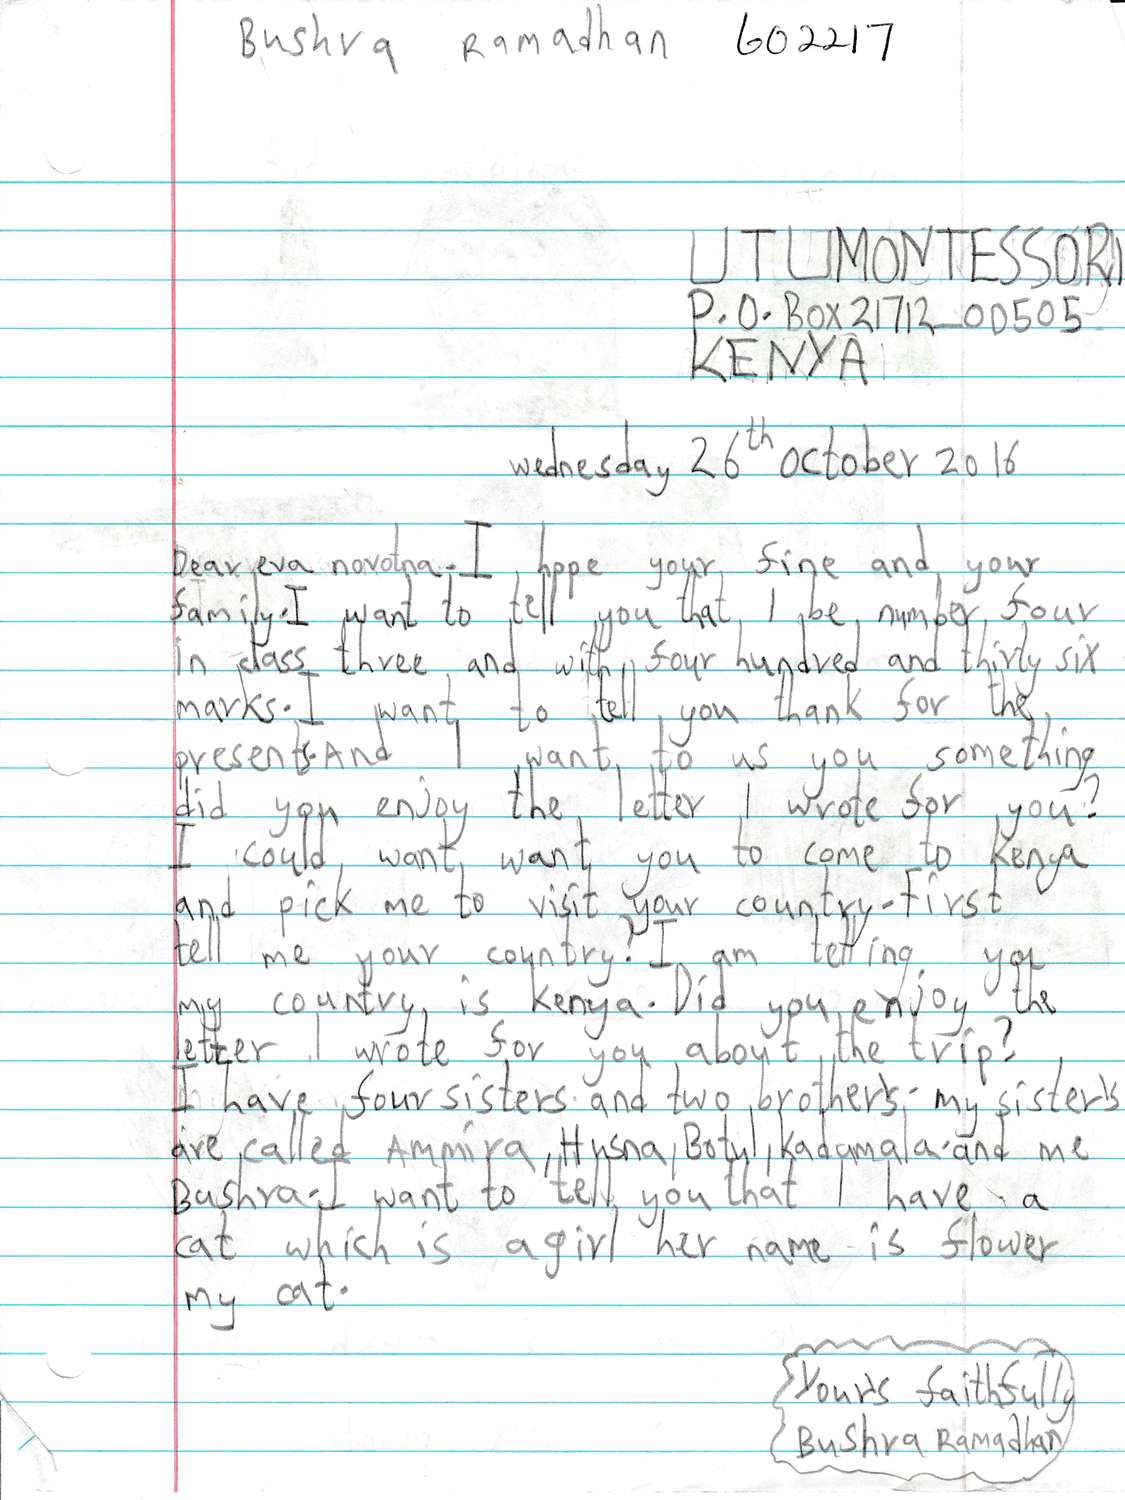 Bushra Ramadhan 602217
UTUMONTESSORI
P.O. Box 21712_00505
KENYA
wednesday 26th october 2016
Dear eva novotna. I hope your fine and your
family. I want to tell you that I be number four
in class three and with four hundred and thirty six
marks. I want to tell you thank for the
presents. And I want to us you something
did you enjoy the letter I wrote for you?
I could want want you to come to Kenya
and pick me to visit your country. First
tell me your country? I am telling you
my country is Kenya. Did you enjoy the
letter I wrote for you about the trip?
I have four sisters and two brother's. my sister's
are called Ammira, Husna, Botul, Kadamala. and me
Bushra. I want to tell you that I have a
cat which is a girl her name is flower
my cat.
Your's faithfully
Bushra Ramadhan